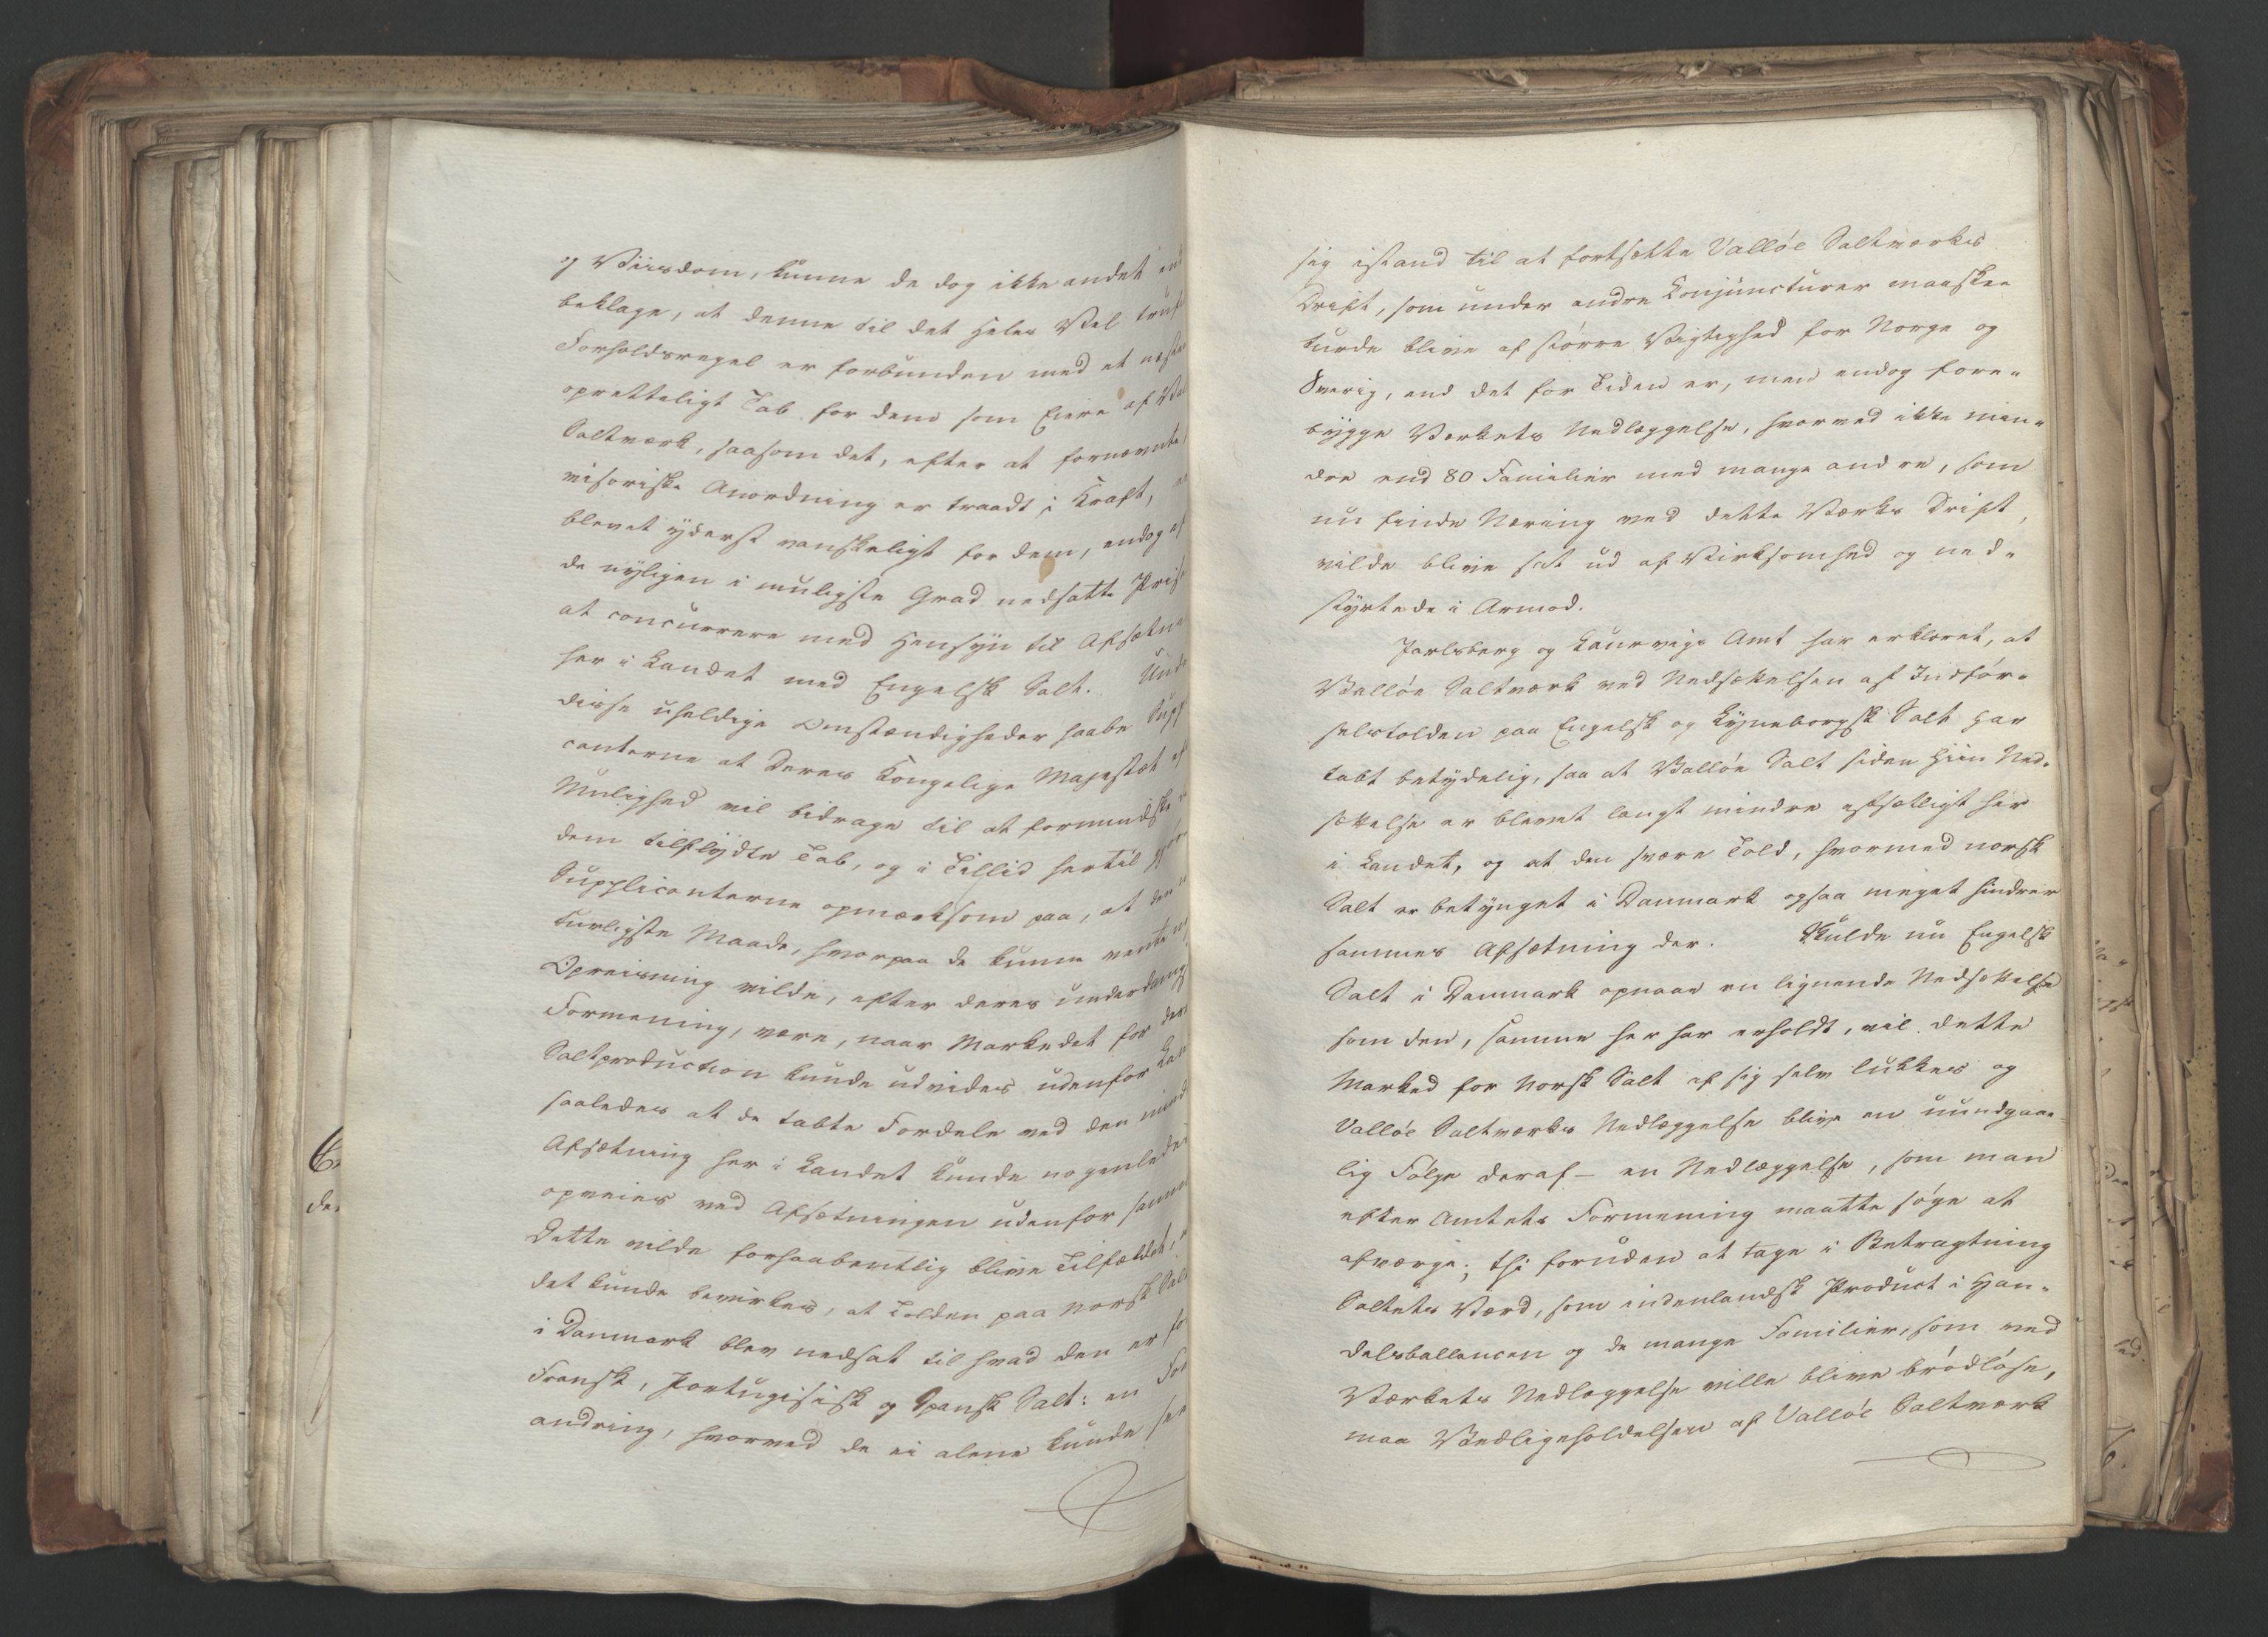 og Viisdom, kunne de dog ikke andet end
beklage, at denne til det Heles Vel trufne
Forholdsregel er forbunden med et næsten
opretteligt Tab for dem som Eiere af
Saltværk, saasom det, efter at fornævnte
visoriske Anordning er traadt i Kraft,
blevet yderst vanskeligt for dem, endog
de nyligen i muligste Grad nedsatte Prise
at concurrere med Hensyn til Afsætn
her i Landet med Engelsk Salt. Unde
disse uheldige Omstændigheder haabe Supp
canterne at Deres Kongelige Majestæt
Mulighed vil bidrage til at formindske
dem tilflydte Tab, og i Tillid hertil gjøre
Supplicanterne opmærksom paa, at den
turligste Maade, hvorpaa de kunne vente
Opreisning vilde, efter deres underdanig
Formening, være, naar Markedet for deres
Saltproduction kunde udvides udenfor Lan
saaledes at de tabte Fordele ved den mind
Afsætning her i Landet kunde nogenledes
opveies ved Afsætningen udenfor samme
Dette vilde forhaabentlig blive Tilfældet,
det kunde bevirkes, at Tolden paa norsk Salt
i Danmark blev nedsat til hvad den er for
Fransk, Portugisisk og Spansk Salt: en For
andring, hvorved de ei alene kunde see
sig istand til at fortsætte Valløe Saltværks
Drift, som under andre Conjuncturer maaskee
turde blive af større Vigtighed for Norge og
Sverig, end det for Tiden er, men endog fore-
bygge Værkets Nedlæggelse, hvorved ikke min-
dre end 80 Familier med mange andre, som
nu finde Næring ved dette Værks Drift,
vilde blive sat ud af Virksomhed og ned-
styrtede i Armod.
Jarlsberg og Laurvigs Amt har erklæret, at
Valløe Saltværk ved Nedsættelsen af Indfør-
selstolden paa Engelsk og Lyneborgsk Salt har
tabt betydelig, saa at Valløe Salt siden hiin Ned-
sættelse er blevet langt mindre afsætligt her
i Landet, og at den svære Told, hvormed norsk
Salt er betynget i Danmark ogsaa meget hindrer
sammes Afsætning der. Skulde nu Engelsk
Salt i Danmark opnaae en lignende Nedsættelse
som den, samme her har erholdt, vil dette
Marked for norsk Salt af sig selv lukkes og
Valløe Saltværks Nedlæggelse blive en uundgaae-
lig Følge deraf - en Nedlæggelse, som man
efter Amtets Formening maatte søge at
afværge; thi foruden at tage i Betragtning
Saltets Værd, som indenlandsk Product i Han-
delsballancen og de mange Familier, som ved
Værkets Nedlæggelse ville blive brødløse,
maa Vedligeholdelsen af Valløe Saltværk